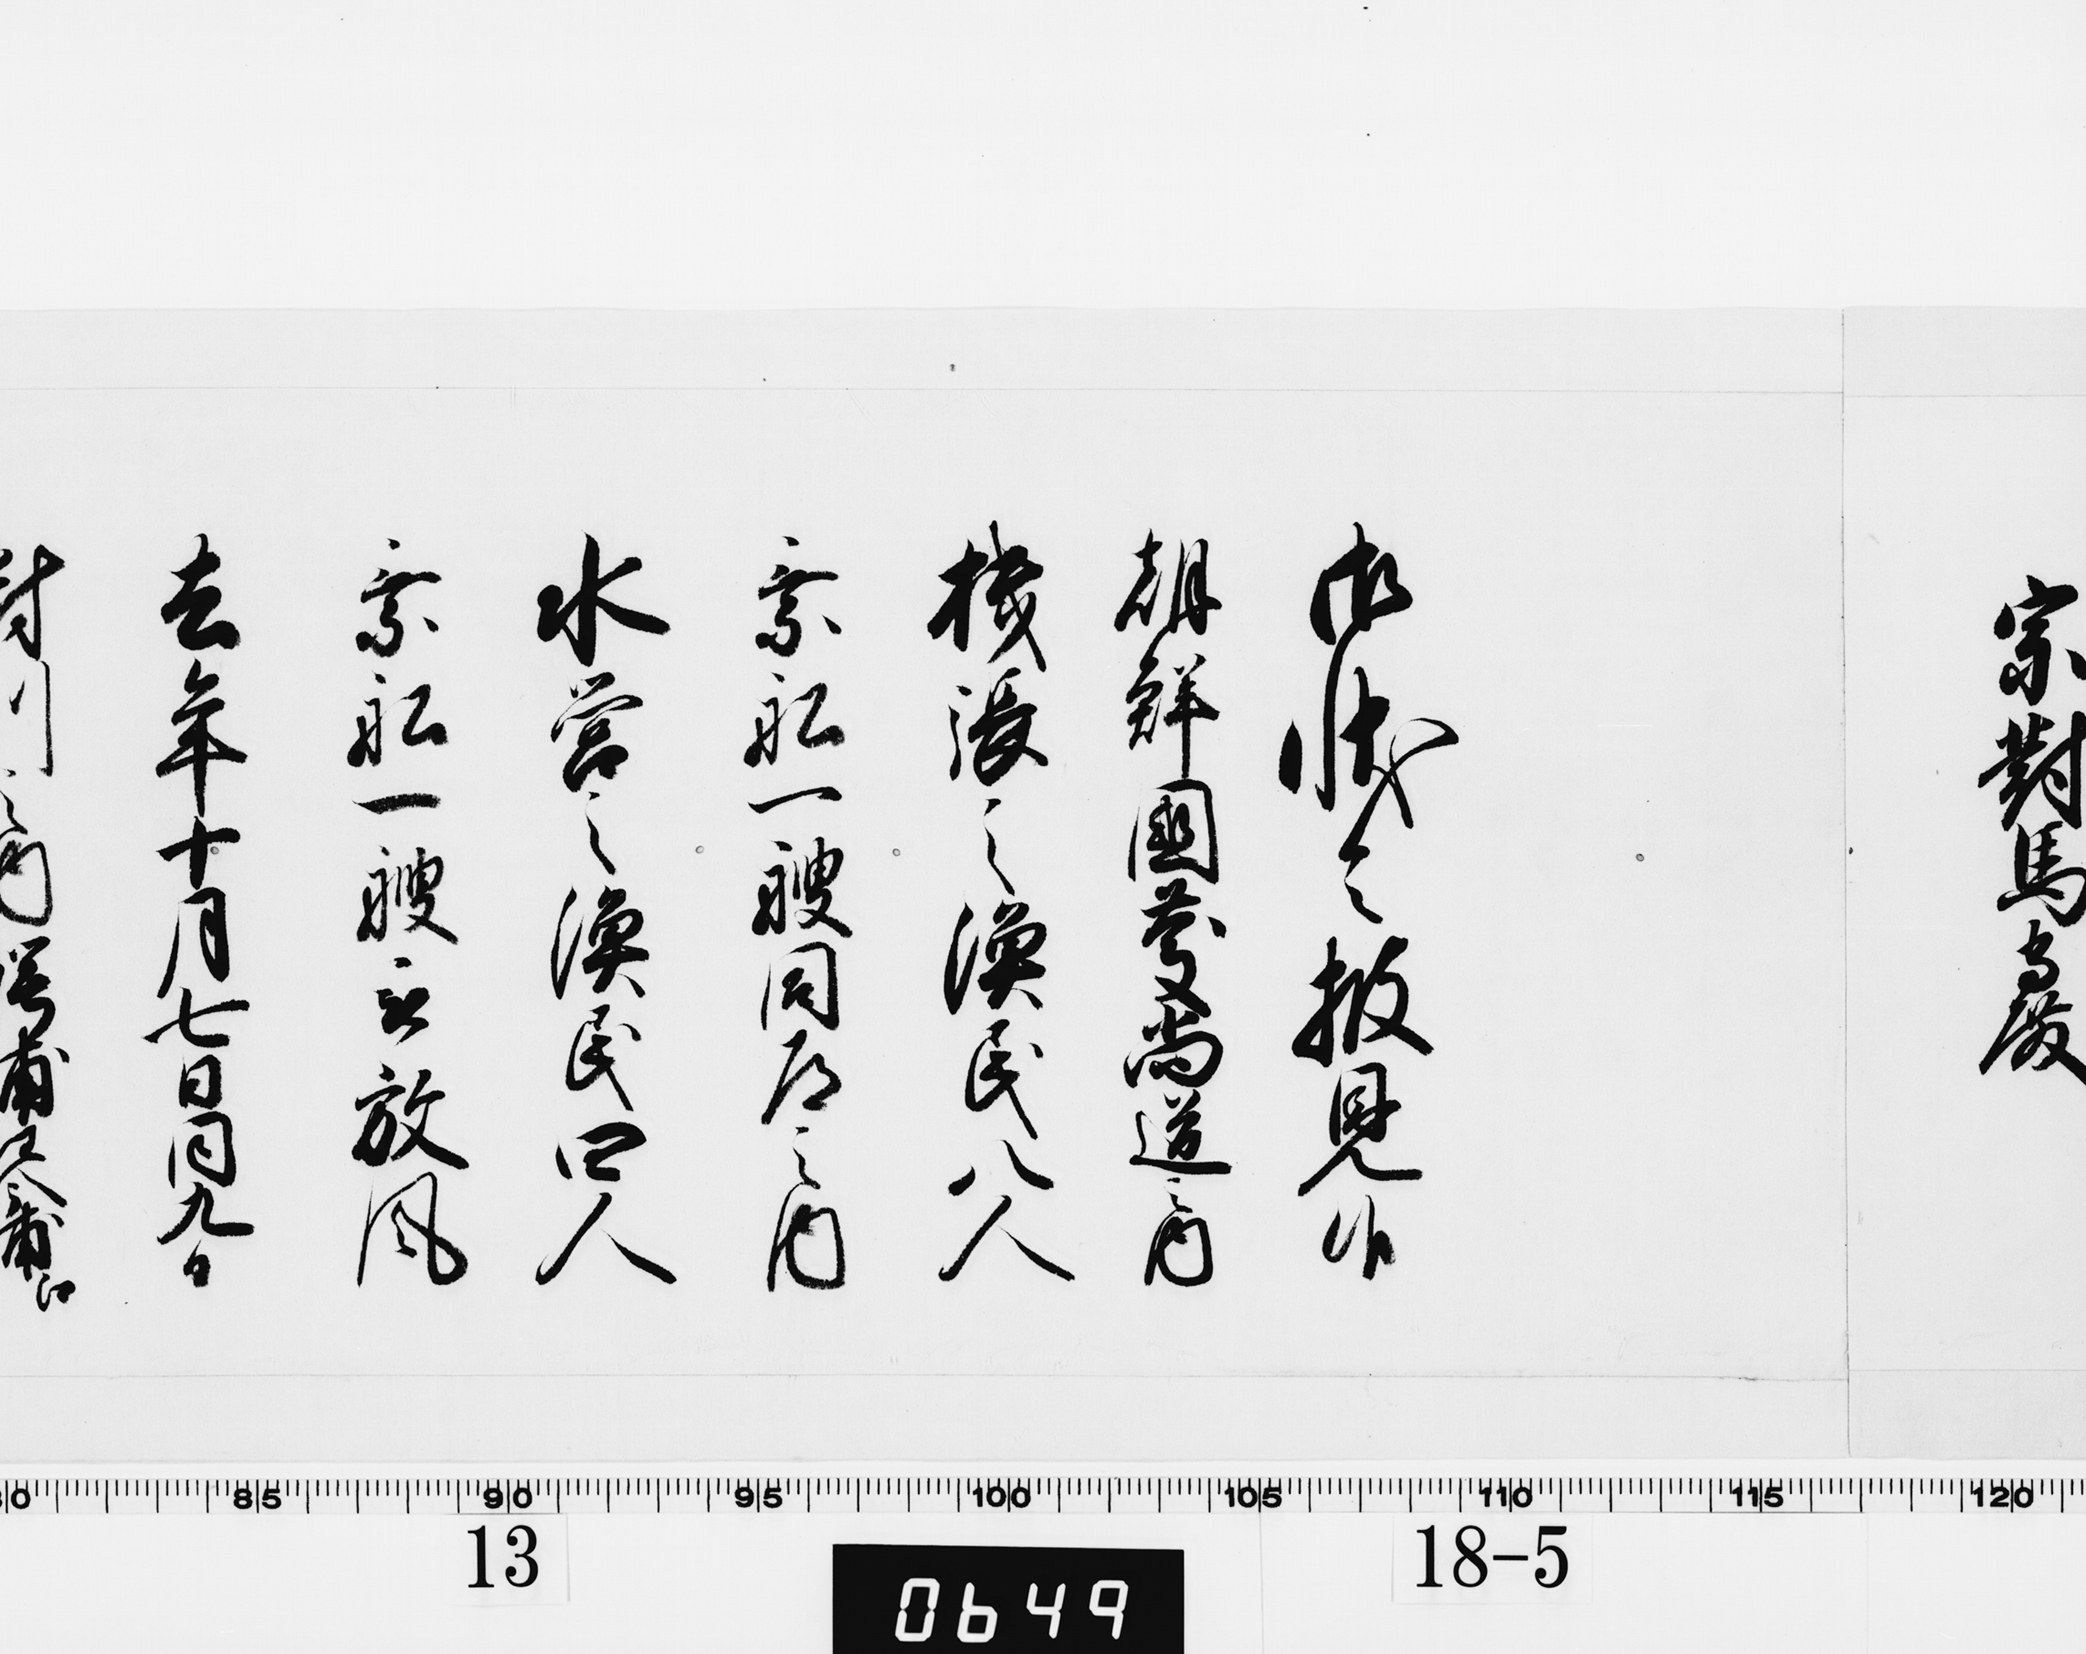 宗對馬守殿
御状令披見候
朝鮮國慶尚道之内
機張之漁民八人
乗舩一艘同所之内
水営之漁民四人
乗舩一艘 放風
去年十月七日同九日
對州之内
80 85 90 95 100 105 110 115 120
13
18-5
0649